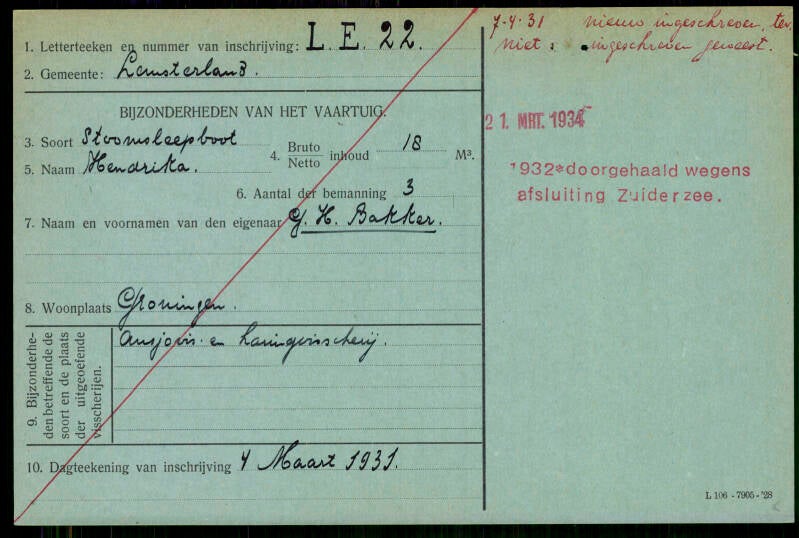 1. Letterteeken en nummer van inschrijving: L.E. 22.
2. Gemeente: Lemsterland.
BIJZONDERHEDEN VAN HET VAARTUIG.
3. Soort Stoomsleepboot
4. Bruto Netto inhoud 18 M³.
5. Naam Hendrika.
6. Aantal der bemanning 3
7. Naam en voornamen van den eigenaar G. H. Bakker.
8. Woonplaats Groningen.
9. Bijzonderhe-
den betreffende de
soort en de plaats
der uitgeoefende
visscherijen.
Ansjovis- en haringvisscherij.
10. Dagteekening van inschrijving 4 Maart 1931.
7-4-31 nieuw ingeschreven,
niet: ingeschreven geweest.
21. MRT. 1934
1932*doorgehaald wegens
afsluiting Zuiderzee.
L 106 - 7905 - '28